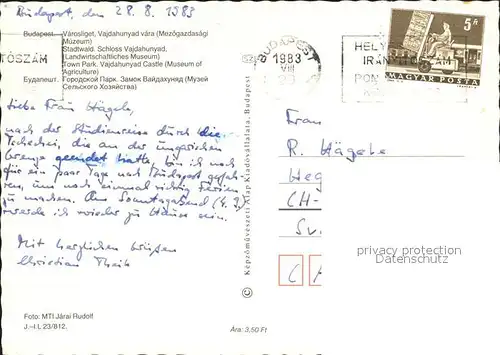 Budapest, den 28.8.1983
Budapest: Városliget, Vajdahunyad vára (Mezőgazdasági
Múzeum)
Stadtwald. Schloss Vajdahunyad.
(Landwirtschaftliches Museum)
Town Park. Vajdahunyad Castle (Museum of
Agriculture)
Будапешт: Городской Парк. Замок Вайдахуняд (Музей
Сельского Хозяйства)
TÓSZÁM
BUDAPEST
1983
VIII
HELY
IRÁNYÍTÓSZÁM
PON
5 Ft
MAGYAR POSTA
Liebe Frau Hägele,
nach der Studienreise durch die
Tschechei, die an der ungarischen
Grenze geendet hatte, bin ich noch
für ein paar Tage nach Budapest gefah-
ren, um noch einmal richtig Ferien
zu machen. Am Sonntagabend (4.9.)
werde ich wieder zu Hause sein.
Mit herzlichen Grüßen
Christian
Képzőművészeti Alap Kiadóvállalata, Budapest
Frau
R. Hägele
Heg
CH-
Sv.
C
privacy protection
Datenschutz
Foto: MTI Járai Rudolf
J.–I.L 23/812.
Ára: 3,50 Ft